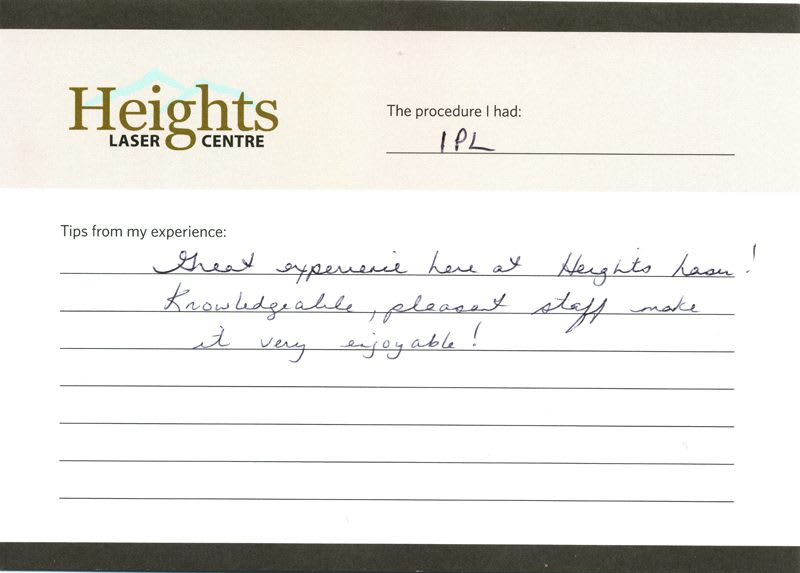 Heights
LASER CENTRE
The procedure I had:
IPL
Tips from my experience:
Great experience here at Heights Laser!
Knowledgeable, pleasant staff make
it very enjoyable!